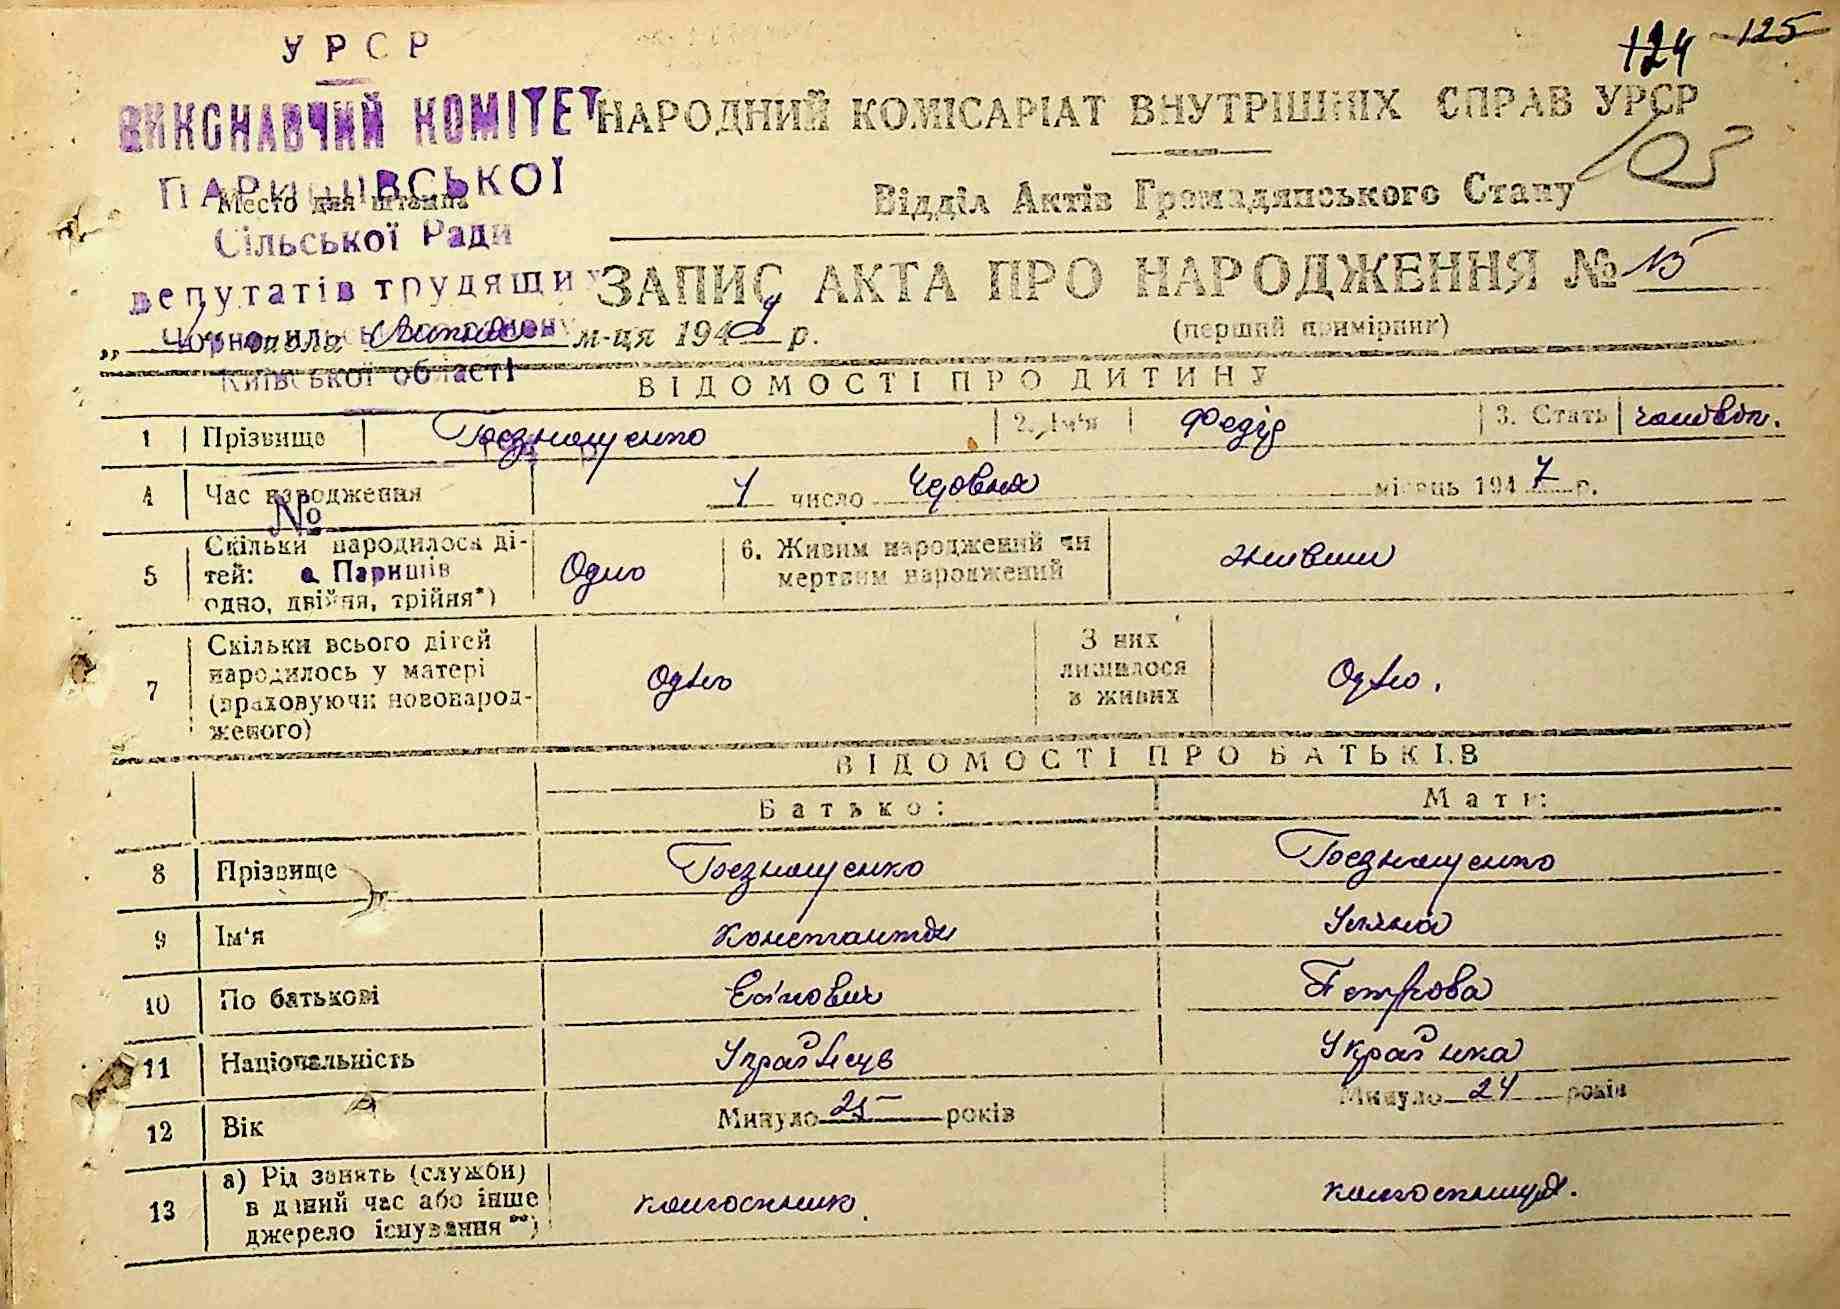 124 125
УРСР
ВИКОНАВЧИЙ КОМІТЕТ
НАРОДНИЙ КОМІСАРІАТ ВНУТРІШНІХ СПРАВ УРСР
103
ПАРИШІВСЬКОЇ
Место для штампа
Відділ Актів Громадянського Стану
Сільської Ради
депутатів трудящих
ЗАПИС АКТА ПРО НАРОДЖЕННЯ № 15
м-ця 194 р.
(перший примірник)
Київської області
ВІДОМОСТІ ПРО ДИТИНУ
1 Прізвище 2. Ім'я Федір 3. Стать
4 Час народження число Червня місяць 1947 р.
№
5 Скільки народилося ді-
тей:
с. Паришів
одно, двійня, трійня*)
Одно
6. Живим народжений чи
мертвим народжений
живим
7 Скільки всього дітей
народилось у матері
(враховуючи новонарод-
женого)
Одно
З них
лишилося
в живих
Одно.
ВІДОМОСТІ ПРО БАТЬКІВ
Батько: Мати:
8 Прізвище
9 Ім'я Константин Уляна
10 По батькові Петрова
11 Національність Українка
12 Вік Минуло 25 років Минуло 24 років
13 а) Рід занять (служби)
в даний час або інше
джерело існування**)
колгоспник колгоспниця.